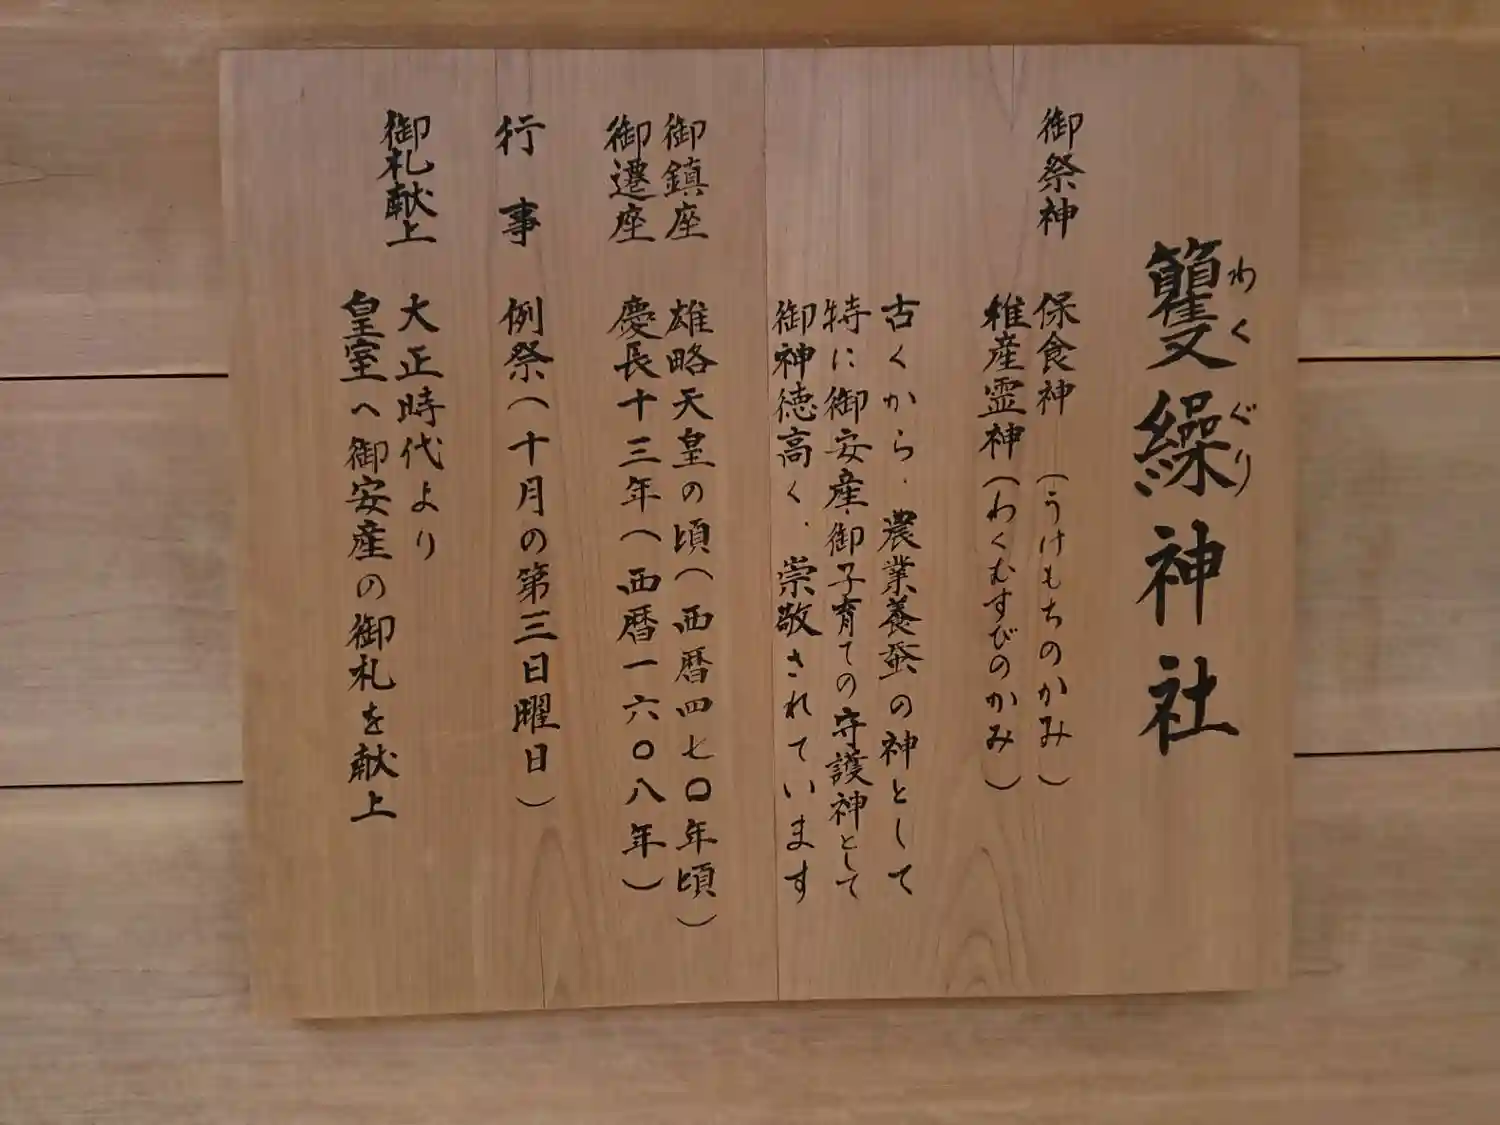 籰繰神社
わくぐり
御祭神
保食神 (うけもちのかみ)
稚産霊神(わくむすびのかみ)
古くから、農業養蚕の神として
特に御安産、御子育ての守護神として
御神徳高く、崇敬されています
御鎮座 雄略天皇の頃(西暦四七〇年頃)
御遷座 慶長十三年(西暦一六〇八年)
行事 例祭(十月の第三日曜日)
御札献上 大正時代より
皇室へ御安産の御札を献上